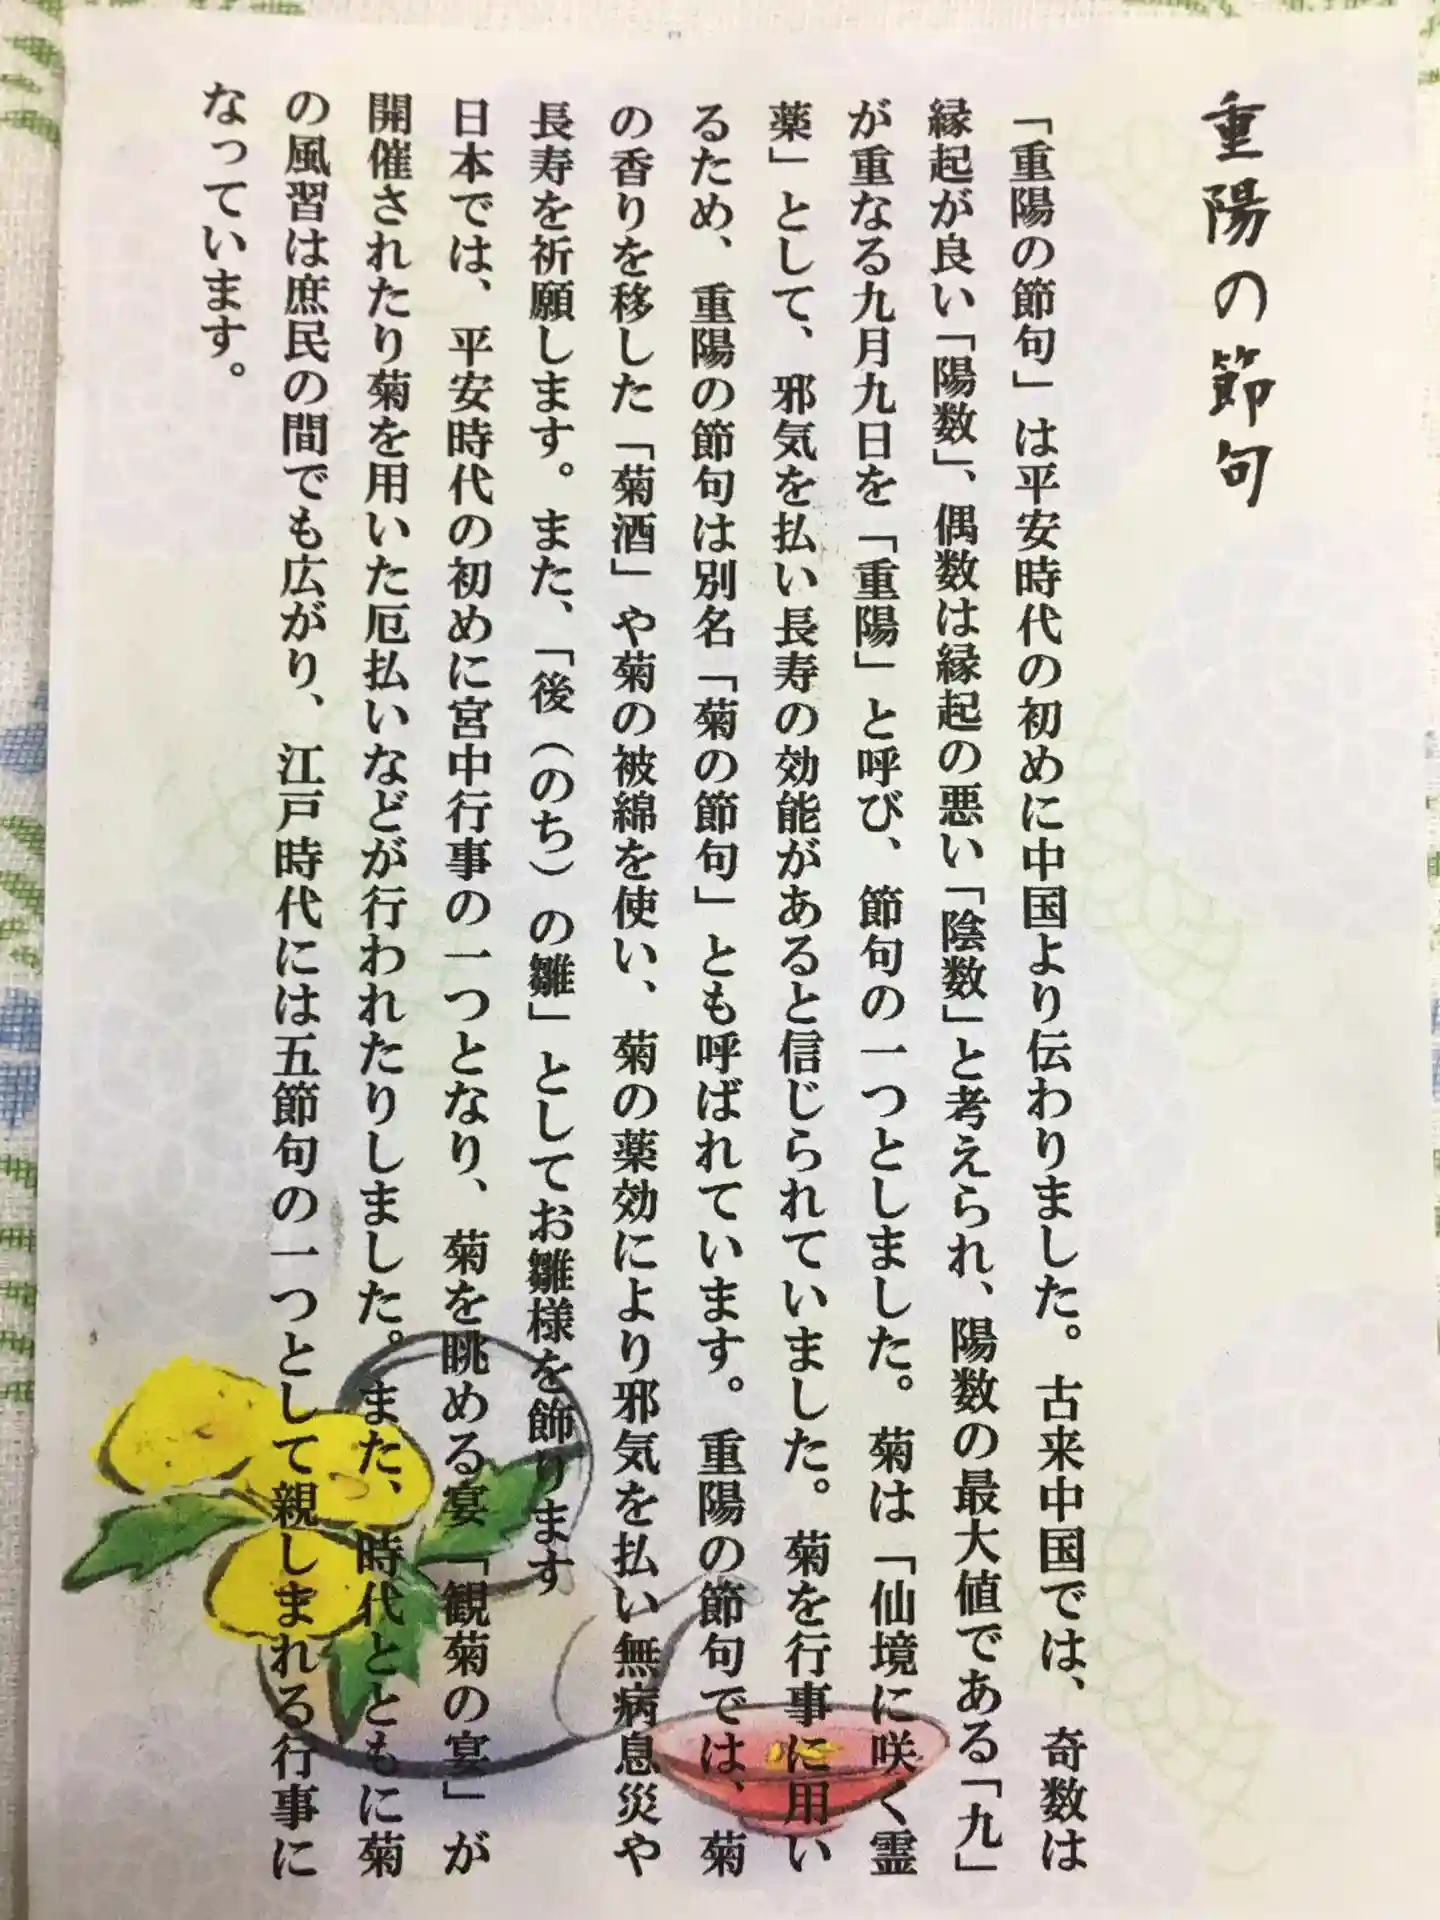 重陽の節句
「重陽の節句」は平安時代の初めに中国より伝わりました。古来中国では、奇数は
縁起が良い「陽数」、偶数は縁起の悪い「陰数」と考えられ、陽数の最大値である「九」
が重なる九月九日を「重陽」と呼び、節句の一つとしました。菊は「仙境に咲く霊
薬」として、邪気を払い長寿の効能があると信じられていました。菊を行事に用い
るため、重陽の節句は別名「菊の節句」とも呼ばれています。重陽の節句では、菊
の香りを移した「菊酒」や菊の被綿を使い、菊の薬効により邪気を払い無病息災や
長寿を祈願します。また、「後（のち）の雛」としてお雛様を飾ります
日本では、平安時代の初めに宮中行事の一つとなり、菊を眺める宴「観菊の宴」が
開催されたり菊を用いた厄払いなどが行われたりしました。また、時代とともに菊
の風習は庶民の間でも広がり、江戸時代には五節句の一つとして親しまれる行事に
なっています。